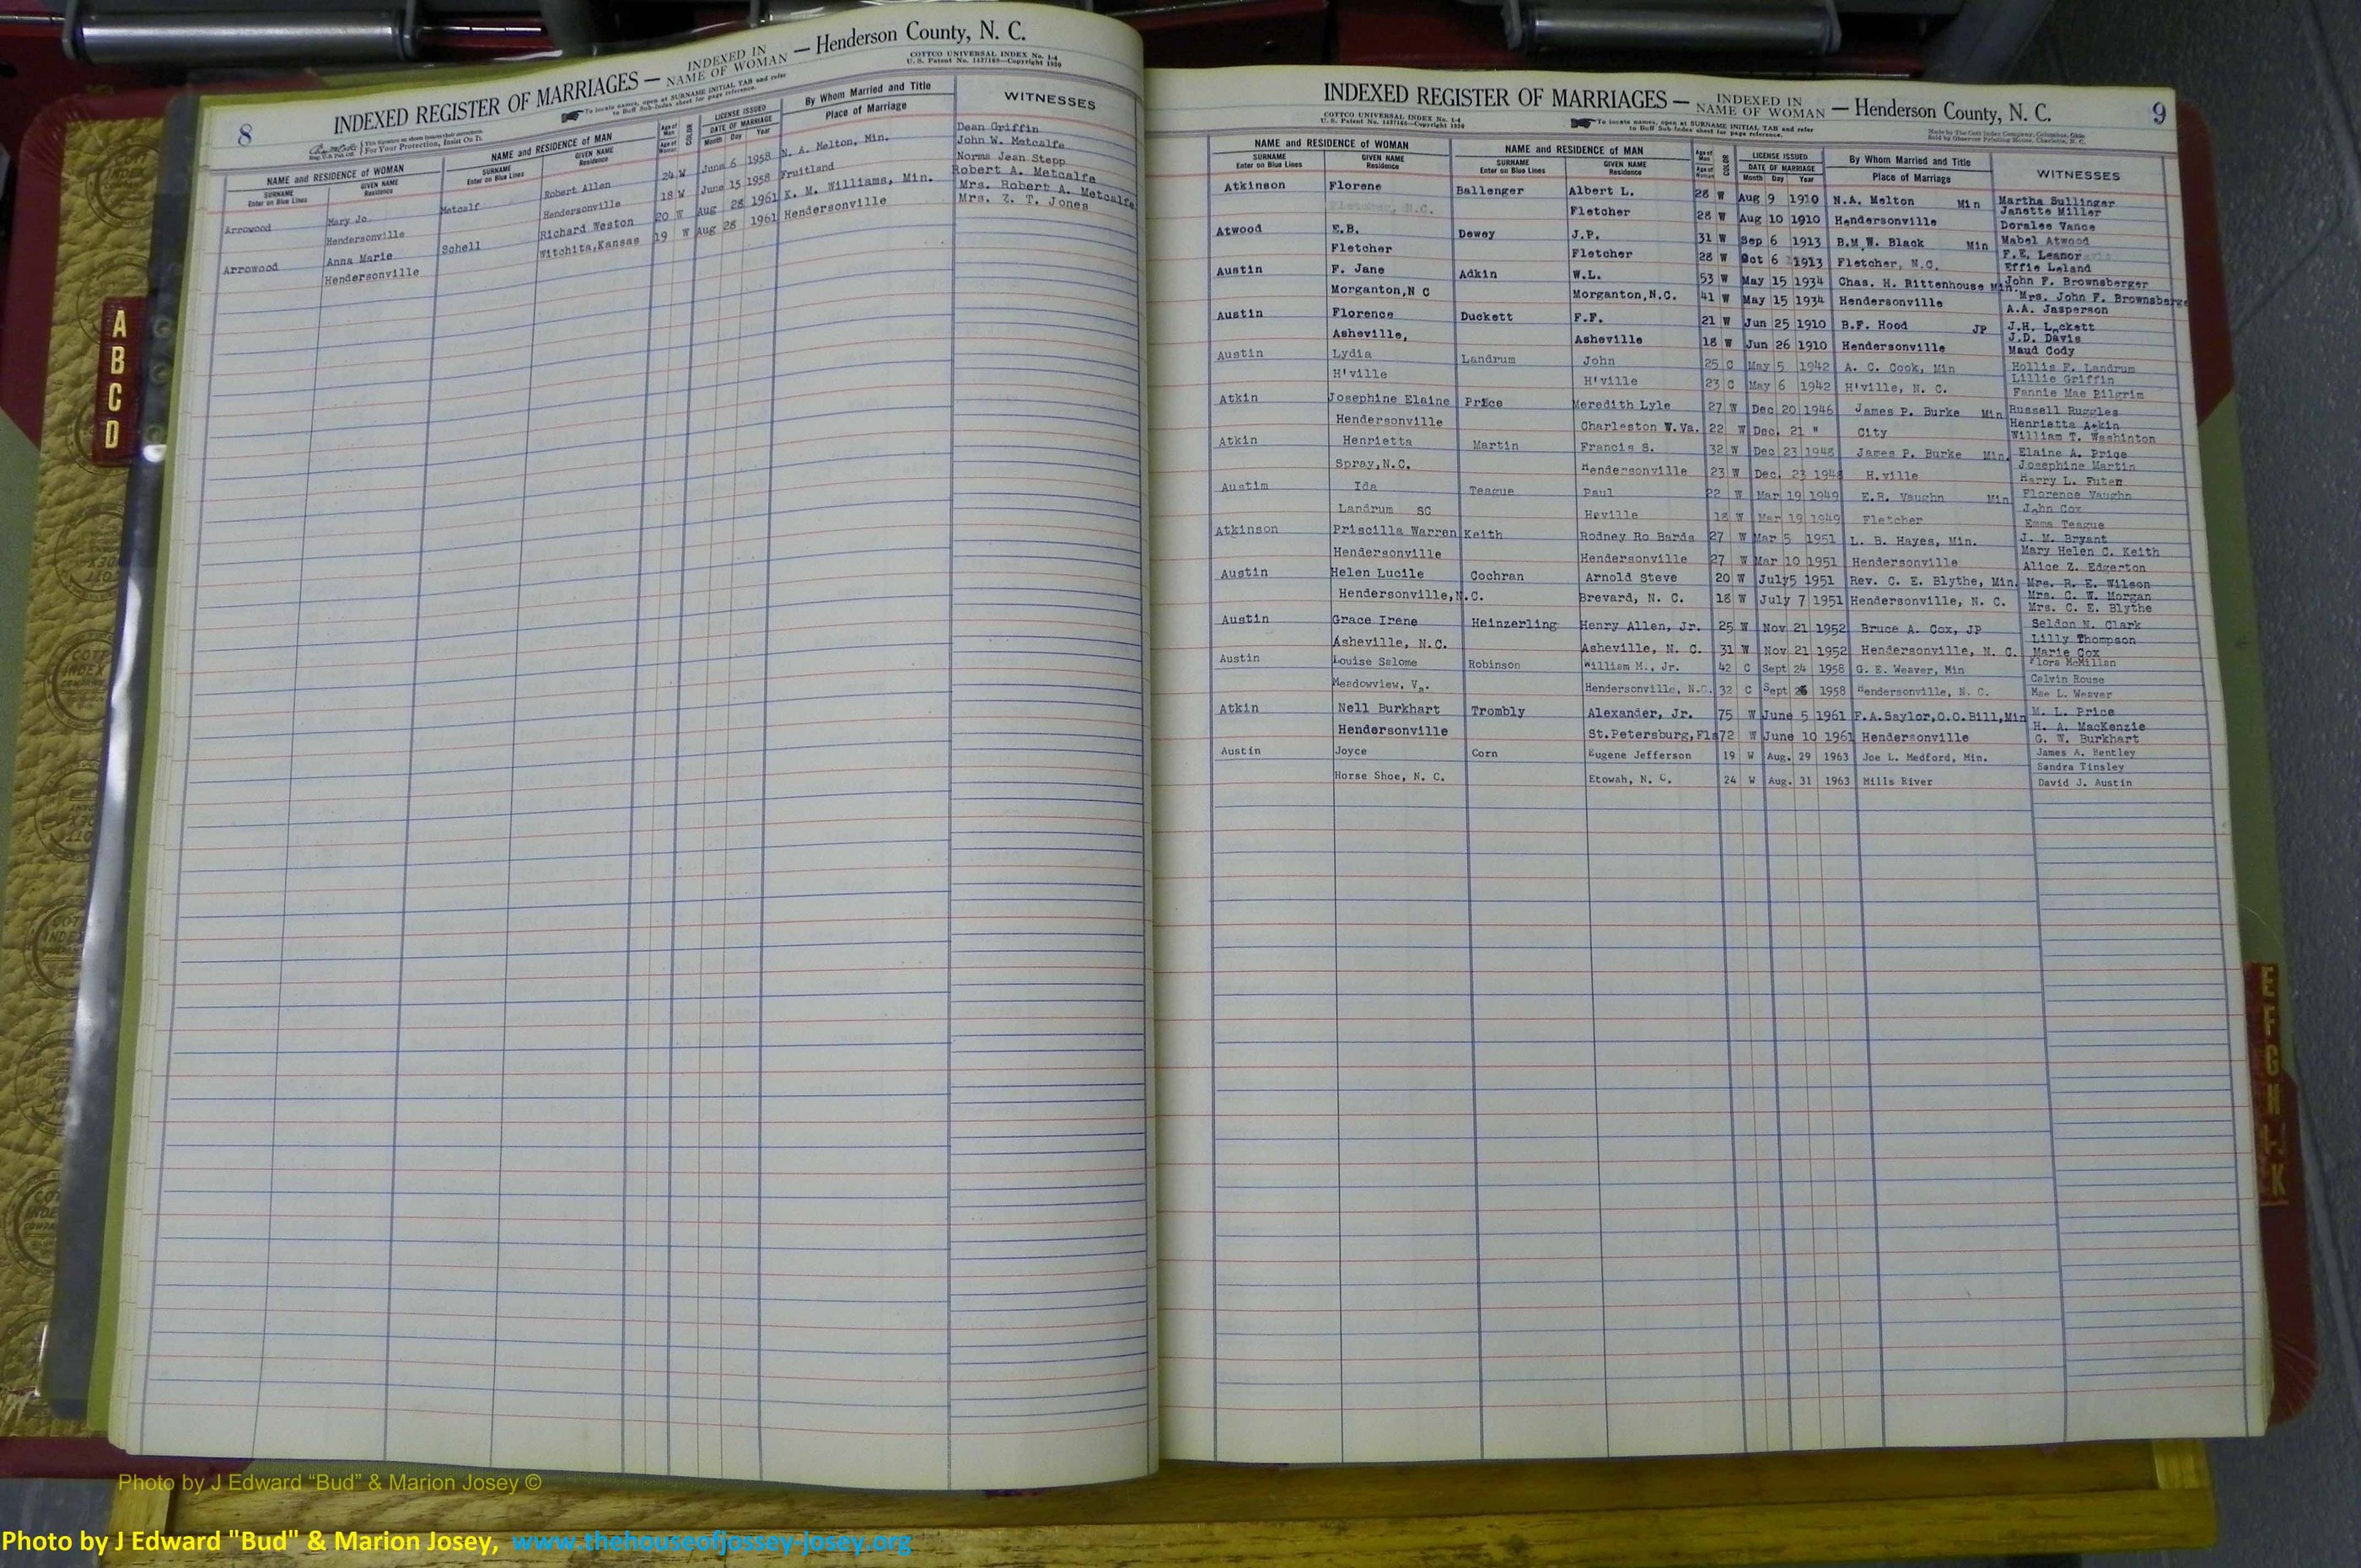 8
INDEXED REGISTER OF MARRIAGES — INDEXED IN NAME OF WOMAN — Henderson County, N. C.
COTTCO UNIVERSAL INDEX No. 1-4
U. S. Patent No. 1437185—Copyright 1930
For Your Protection, Insist On It.
To locate names, open at SURNAME INITIAL TAB and refer
to Buff Sub-Index sheet for page reference.
NAME and RESIDENCE OF WOMAN NAME and RESIDENCE OF MAN Age of Man Age of Woman COLOR LICENSE ISSUED DATE OF MARRIAGE By Whom Married and Title Place of Marriage WITNESSES
SURNAME Enter on Blue Lines GIVEN NAME Residence SURNAME Enter on Blue Lines GIVEN NAME Residence Month Day Year
Arrowood Mary Jo Metcalf Robert Allen 24 W June 6 1958 N. A. Melton, Min. Dean Griffin
John W. Metcalfe
Hendersonville Hendersonville 18 W June 15 1958 Fruitland Norma Jean Stepp
Arrowood Anna Marie Schell Richard Weston 20 W Aug 28 1961 K. M. Williams, Min. Robert A. Metcalfe
Mrs. Robert A. Metcalfe
Hendersonville Witchita,Kansas 19 W Aug 28 1961 Hendersonville Mrs. Z. T. Jones
A
B
C
D
9
INDEXED REGISTER OF MARRIAGES — INDEXED IN NAME OF WOMAN — Henderson County, N. C.
COTTCO UNIVERSAL INDEX No. 1-4
U. S. Patent No. 1437185—Copyright 1930
To locate names, open at SURNAME INITIAL TAB and refer
to Buff Sub-Index sheet for page reference.
Made by The Cott Index Company, Columbus, Ohio
Sold by Observer Printing House, Charlotte, N. C.
NAME and RESIDENCE OF WOMAN NAME and RESIDENCE OF MAN Age of Man Age of Woman COLOR LICENSE ISSUED DATE OF MARRIAGE By Whom Married and Title Place of Marriage WITNESSES
SURNAME Enter on Blue Lines GIVEN NAME Residence SURNAME Enter on Blue Lines GIVEN NAME Residence Month Day Year
Atkinson Florene Ballenger Albert L. 28 W Aug 9 1910 N.A. Melton Min Martha Sullinger
Janette Miller
Fletcher, N.C. Fletcher 28 W Aug 10 1910 Hendersonville Doralee Vance
Atwood E.B. Dewey J.P. 31 W Sep 6 1913 B.M.W. Black Min Mabel Atwood
F.E. Leanor
Fletcher Fletcher 28 W Oct 6 1913 Fletcher, N.C. Effie Leland
Austin F. Jane Adkin W.L. 53 W May 15 1934 Chas. H. Rittenhouse Min. John F. Brownsberger
Mrs. John F. Brownsberge
Morganton,N C Morganton,N.C. 41 W May 15 1934 Hendersonville A.A. Jasperson
Austin Florence Duckett F.F. 21 W Jun 25 1910 B.F. Hood JP J.H. Lockett
J.D. Davis
Asheville, Asheville 18 W Jun 26 1910 Hendersonville Maud Cody
Austin Lydia Landrum John 25 C May 5 1942 A. C. Cook, Min Hollis F. Landrum
Lillie Griffin
H'ville H'ville 23 C May 6 1942 H'ville, N. C. Fannie Mae Pilgrim
Atkin Josephine Elaine Price Meredith Lyle 27 W Dec 20 1946 James P. Burke Min Russell Ruggles
Henrietta Atkin
Hendersonville Charleston W.Va. 22 W Dec. 21 " City William T. Washinton
Atkin Henrietta Martin Francis S. 32 W Dec 23 1948 James P. Burke Min. Elaine A. Price
Josephine Martin
Spray,N.C. Hendersonville 23 W Dec. 23 1948 H.ville Harry L. Futen
Austim Ida Teague Paul 22 W Mar 19 1949 E.R. Vaughn Min Florence Vaughn
John Cox
Landrum SC Heville 18 W Mar 19 1949 Fletcher Emma Teague
Atkinson Priscilla Warren Keith Rodney Ro Bards 27 W Mar 5 1951 L. B. Hayes, Min. J. M. Bryant
Mary Helen C. Keith
Hendersonville Hendersonville 27 W Mar 10 1951 Hendersonville Alice Z. Edgerton
Austin Helen Lucile Cochran Arnold Steve 20 W July5 1951 Rev. C. E. Blythe, Min. Mrs. R. E. Wilson
Mrs. C. W. Morgan
Hendersonville,N.C. Brevard, N. C. 18 W July 7 1951 Hendersonville, N. C. Mrs. C. E. Blythe
Austin Grace Irene Heinzerling Henry Allen, Jr. 25 W Nov 21 1952 Bruce A. Cox, JP Seldon N. Clark
Lilly Thompson
Asheville, N.C. Asheville, N. C. 31 W Nov 21 1952 Hendersonville, N. C. Marie Cox
Austin Louise Salome Robinson William M., Jr. 42 C Sept 24 1958 G. E. Weaver, Min Flora McMillan
Calvin Rouse
Meadowview, Va. Hendersonville, N.C. 32 C Sept 26 1958 Hendersonville, N. C. Mae L. Weaver
Atkin Nell Burkhart Trombly Alexander, Jr. 75 W June 5 1961 F.A.Saylor,O.O.Bill,Min M. L. Price
H. A. MacKenzie
Hendersonville St.Petersburg,Fla 72 W June 10 1961 Hendersonville G. W. Burkhart
Austin Joyce Corn Eugene Jefferson 19 W Aug. 29 1963 Joe L. Medford, Min. James A. Bentley
Sandra Tinsley
Horse Shoe, N. C. Etowah, N. C. 24 W Aug. 31 1963 Mills River David J. Austin
E
F
G
H
I-J
K
Photo by J Edward “Bud” & Marion Josey ©
Photo by J Edward "Bud" & Marion Josey, www.thehouseofjossey-josey.org